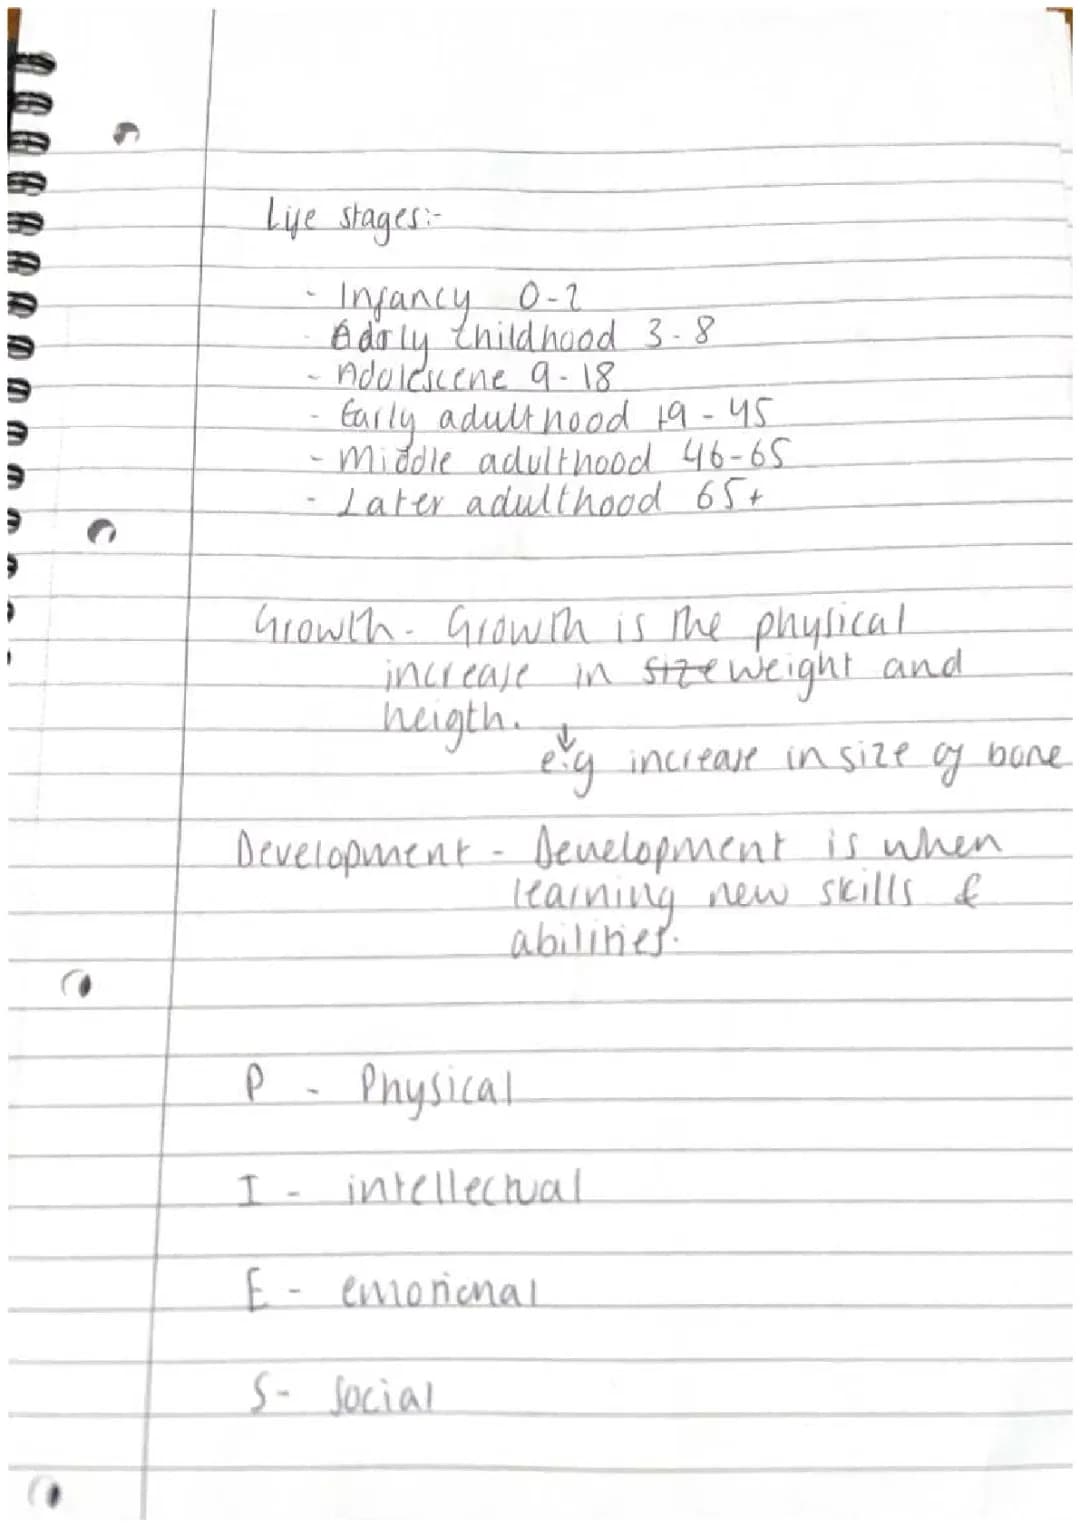 Life stages:-
- Infancy 0-2
- Early childhood 3-8
- Adolescene 9-18
- Early adulthood 19-45
- Middle adulthood 46-65
- Later adulthood 65+
Growth- Growth is the physical
increase in size weight and
heigth.
e.g increase in size of bone
Development - Development is when
learning new skills &
abilities.
P - Physical
I - intellectual
E - emotional
S- Social